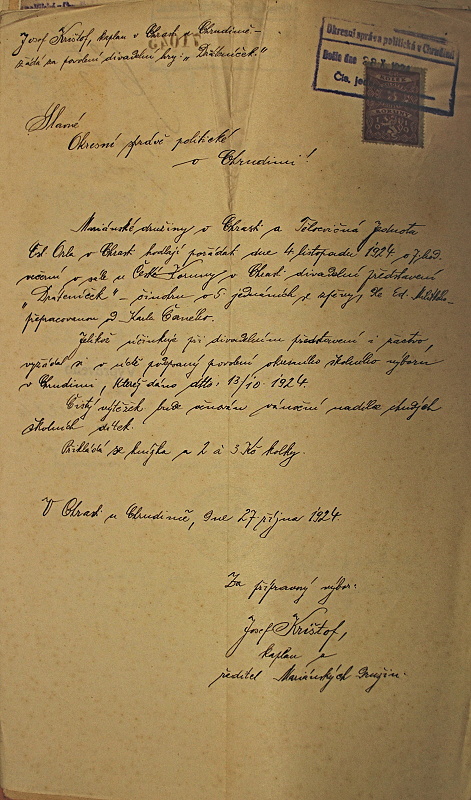 Josef Krištof, kaplan v Chrasti u Chrudimě
žádá za povolení divadelní hry: „Dráteníček."
Okresní správa politická v Chrudimi
Došlo dne
Čís. jed
Slavné
Okresní správě politické
v Chrudimi!
Mariánské družiny v Chrasti a Tělocvičná Jednota
Čsl. Orla v Chrasti hodlají pořádati dne 4. listopadu 1924 o hod.
večerní v sále u České Koruny v Chrasti divadelní představení
„Dráteníček" – činohru o 5 jednáních se zpěvy, dle Ed.
přepracovanou d. Karla
Jelikož účinkuje při divadelním představení i žactvo,
vyžádal si v úctě podepsaný povolení okresního školního výboru
v Chrudimi, kteréž dáno dtto: 13/10. 1924.
Čistý výtěžek bude věnován vánoční nadílce chudých
školních dítek.
Přikládá se knížka a 2 à 3 Kč kolky.
V Chrasti u Chrudimě, dne 27. října 1924.
Za přípravný výbor:
Josef Krištof,
kaplan a
ředitel Mariánských Družin.